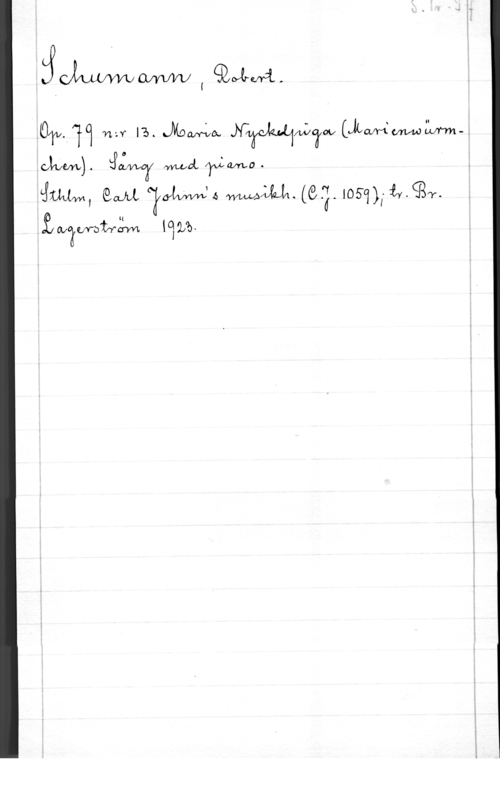 Schumann, Robert.
Op. 79 n:r 13. Maria Nyckelpiga (Marienwürm-
chen). Sång med piano.
Sthlm, Carl Johnn's musikh. (C.J. 1059); tr. Br.
Lagerström 1923.